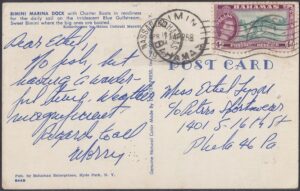 BIMINI MARINA DOCK with Charter Boats in readiness
for the daily sail on the Iridescent Blue Gulfstream.
Sweet Bimini where the big ones are boated.
BIMINI
BAHAMAS
BAHAMAS
POST CARD
Dear Ethel,
No fish, but
having a wonder-
ful time. Weather
magnificent
Regards to all
Morry
Miss Ethel
Peters Sportswear
1401 S. 16th St
Phila 46 Pa
Pub. by Bahamian Enterprises, Hyde Park, N. Y.